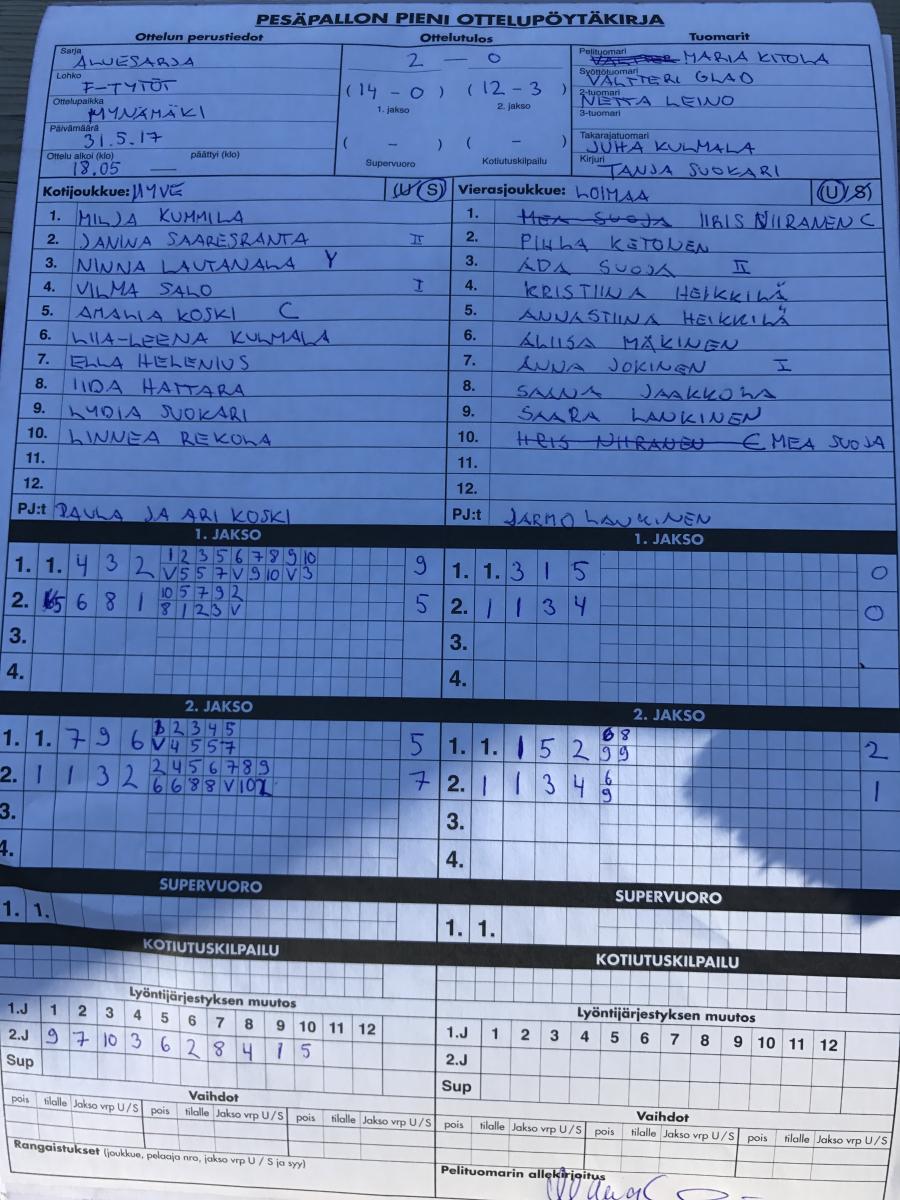 PESÄPALLON PIENI OTTELUPÖYTÄKIRJA
Ottelun perustiedot Ottelutulos Tuomarit
Sarja ALUESARJA
Lohko F-TYTÖT
Ottelupaikka MYNÄMÄKI
Päivämäärä 31.5.17
Ottelu alkoi (klo) 18.05 päättyi (klo) —
2 — 0
(14 - 0) (12 - 3)
1. jakso 2. jakso
( - ) ( - )
Supervuoro Kotiutuskilpailu
Pelituomari MARIA KITOLA
Syöttötuomari VALTTERI GLAD
2-tuomari NETTA LEINO
3-tuomari
Takarajatuomari JUHA KULMALA
Kirjuri TANJA SUOKARI
Kotijoukkue: MYVE (U/S)
1. MILJA KUMMILA
2. JANINA SAARESRANTA II
3. NINNA LAUTANALA Y
4. VILMA SALO I
5. AMALIA KOSKI C
6. LIIA-LEENA KULMALA
7. ELLA HELENIUS
8. IIDA HATTARA
9. LYDIA SUOKARI
10. LINNEA REKOLA
11.
12.
PJ:t PAULA JA ARI KOSKI
Vierasjoukkue: LOIMAA (U/S)
1. MEA SUOJA IIRIS NIIRANEN C
2. PIHLA KETONEN
3. ADA SUOJA II
4. KRISTIINA HEIKKILÄ
5. ANNASTIINA HEIKKILÄ
6. ALIISA MÄKINEN
7. ANNA JOKINEN I
8. SANNA JAAKKOLA
9. SAARA LANKINEN
10. IIRIS NIIRANEN C MEA SUOJA
11.
12.
PJ:t JARMO LANKINEN
1. JAKSO
1. 1. 4 3 2 1 2 3 5 6 7 8 9 10 9
V 5 5 7 V 9 10 V 3
2. 5 6 8 1 10 5 7 9 2 5
8 1 2 3 V
3.
4.
1. JAKSO
1. 1. 3 1 5 0
2. 1 1 3 4 0
3.
4.
2. JAKSO
1. 1. 7 9 6 1 2 3 4 5 5
V 4 5 5 7
2. 1 1 3 2 2 4 5 6 7 8 9 7
6 6 8 8 V 10 2
3.
4.
2. JAKSO
1. 1. 1 5 2 6 8 2
9 9
2. 1 1 3 4 6 1
9
3.
4.
SUPERVUORO
1. 1.
SUPERVUORO
1. 1.
KOTIUTUSKILPAILU
KOTIUTUSKILPAILU
Lyöntijärjestyksen muutos
1.J 1 2 3 4 5 6 7 8 9 10 11 12
2.J 9 7 10 3 6 2 8 4 1 5
Sup
Lyöntijärjestyksen muutos
1.J 1 2 3 4 5 6 7 8 9 10 11 12
2.J
Sup
Vaihdot
pois tilalle Jakso vrp U/S pois tilalle Jakso vrp U/S pois tilalle Jakso vrp U/S
Vaihdot
pois tilalle Jakso vrp U/S pois tilalle Jakso vrp U/S pois tilalle Jakso vrp U/S
Rangaistukset (joukkue, pelaaja nro, jakso vrp U / S ja syy)
Pelituomarin allekirjoitus